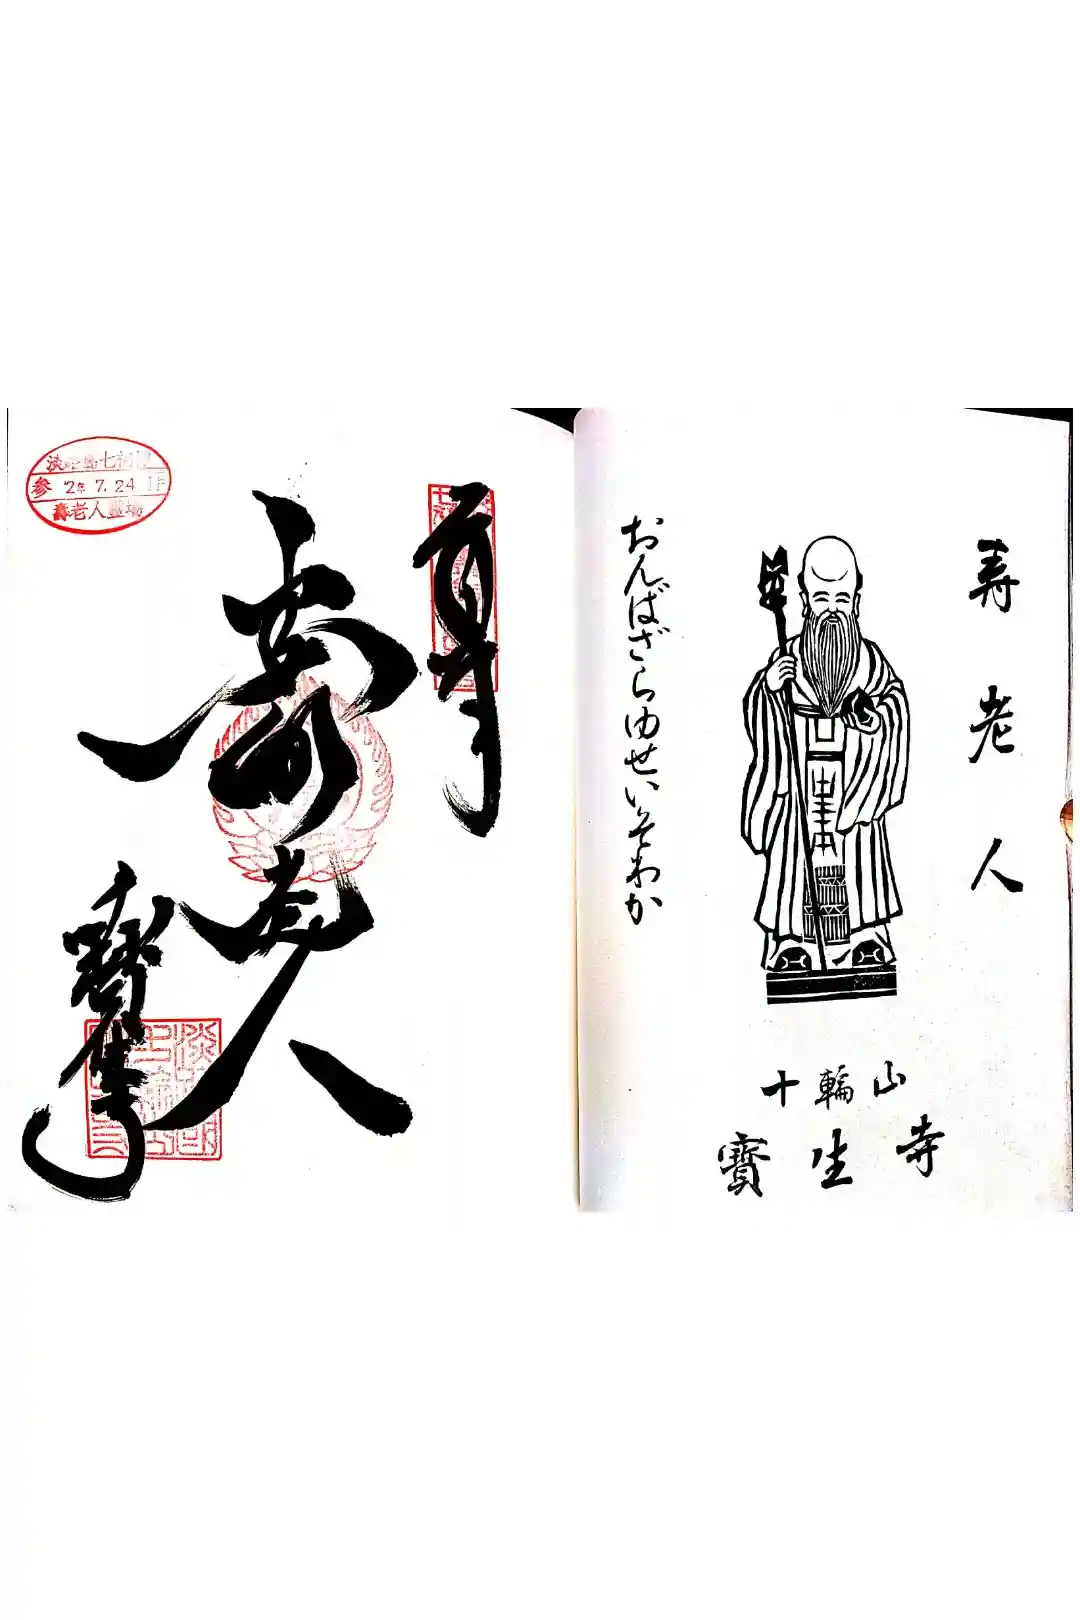 寿老人
おんばざらゆせいそわか
十輪山
寶生寺
奉拝
壽老人
寶生寺
淡路島七福神
参 2年 7.24 拝
壽老人霊場